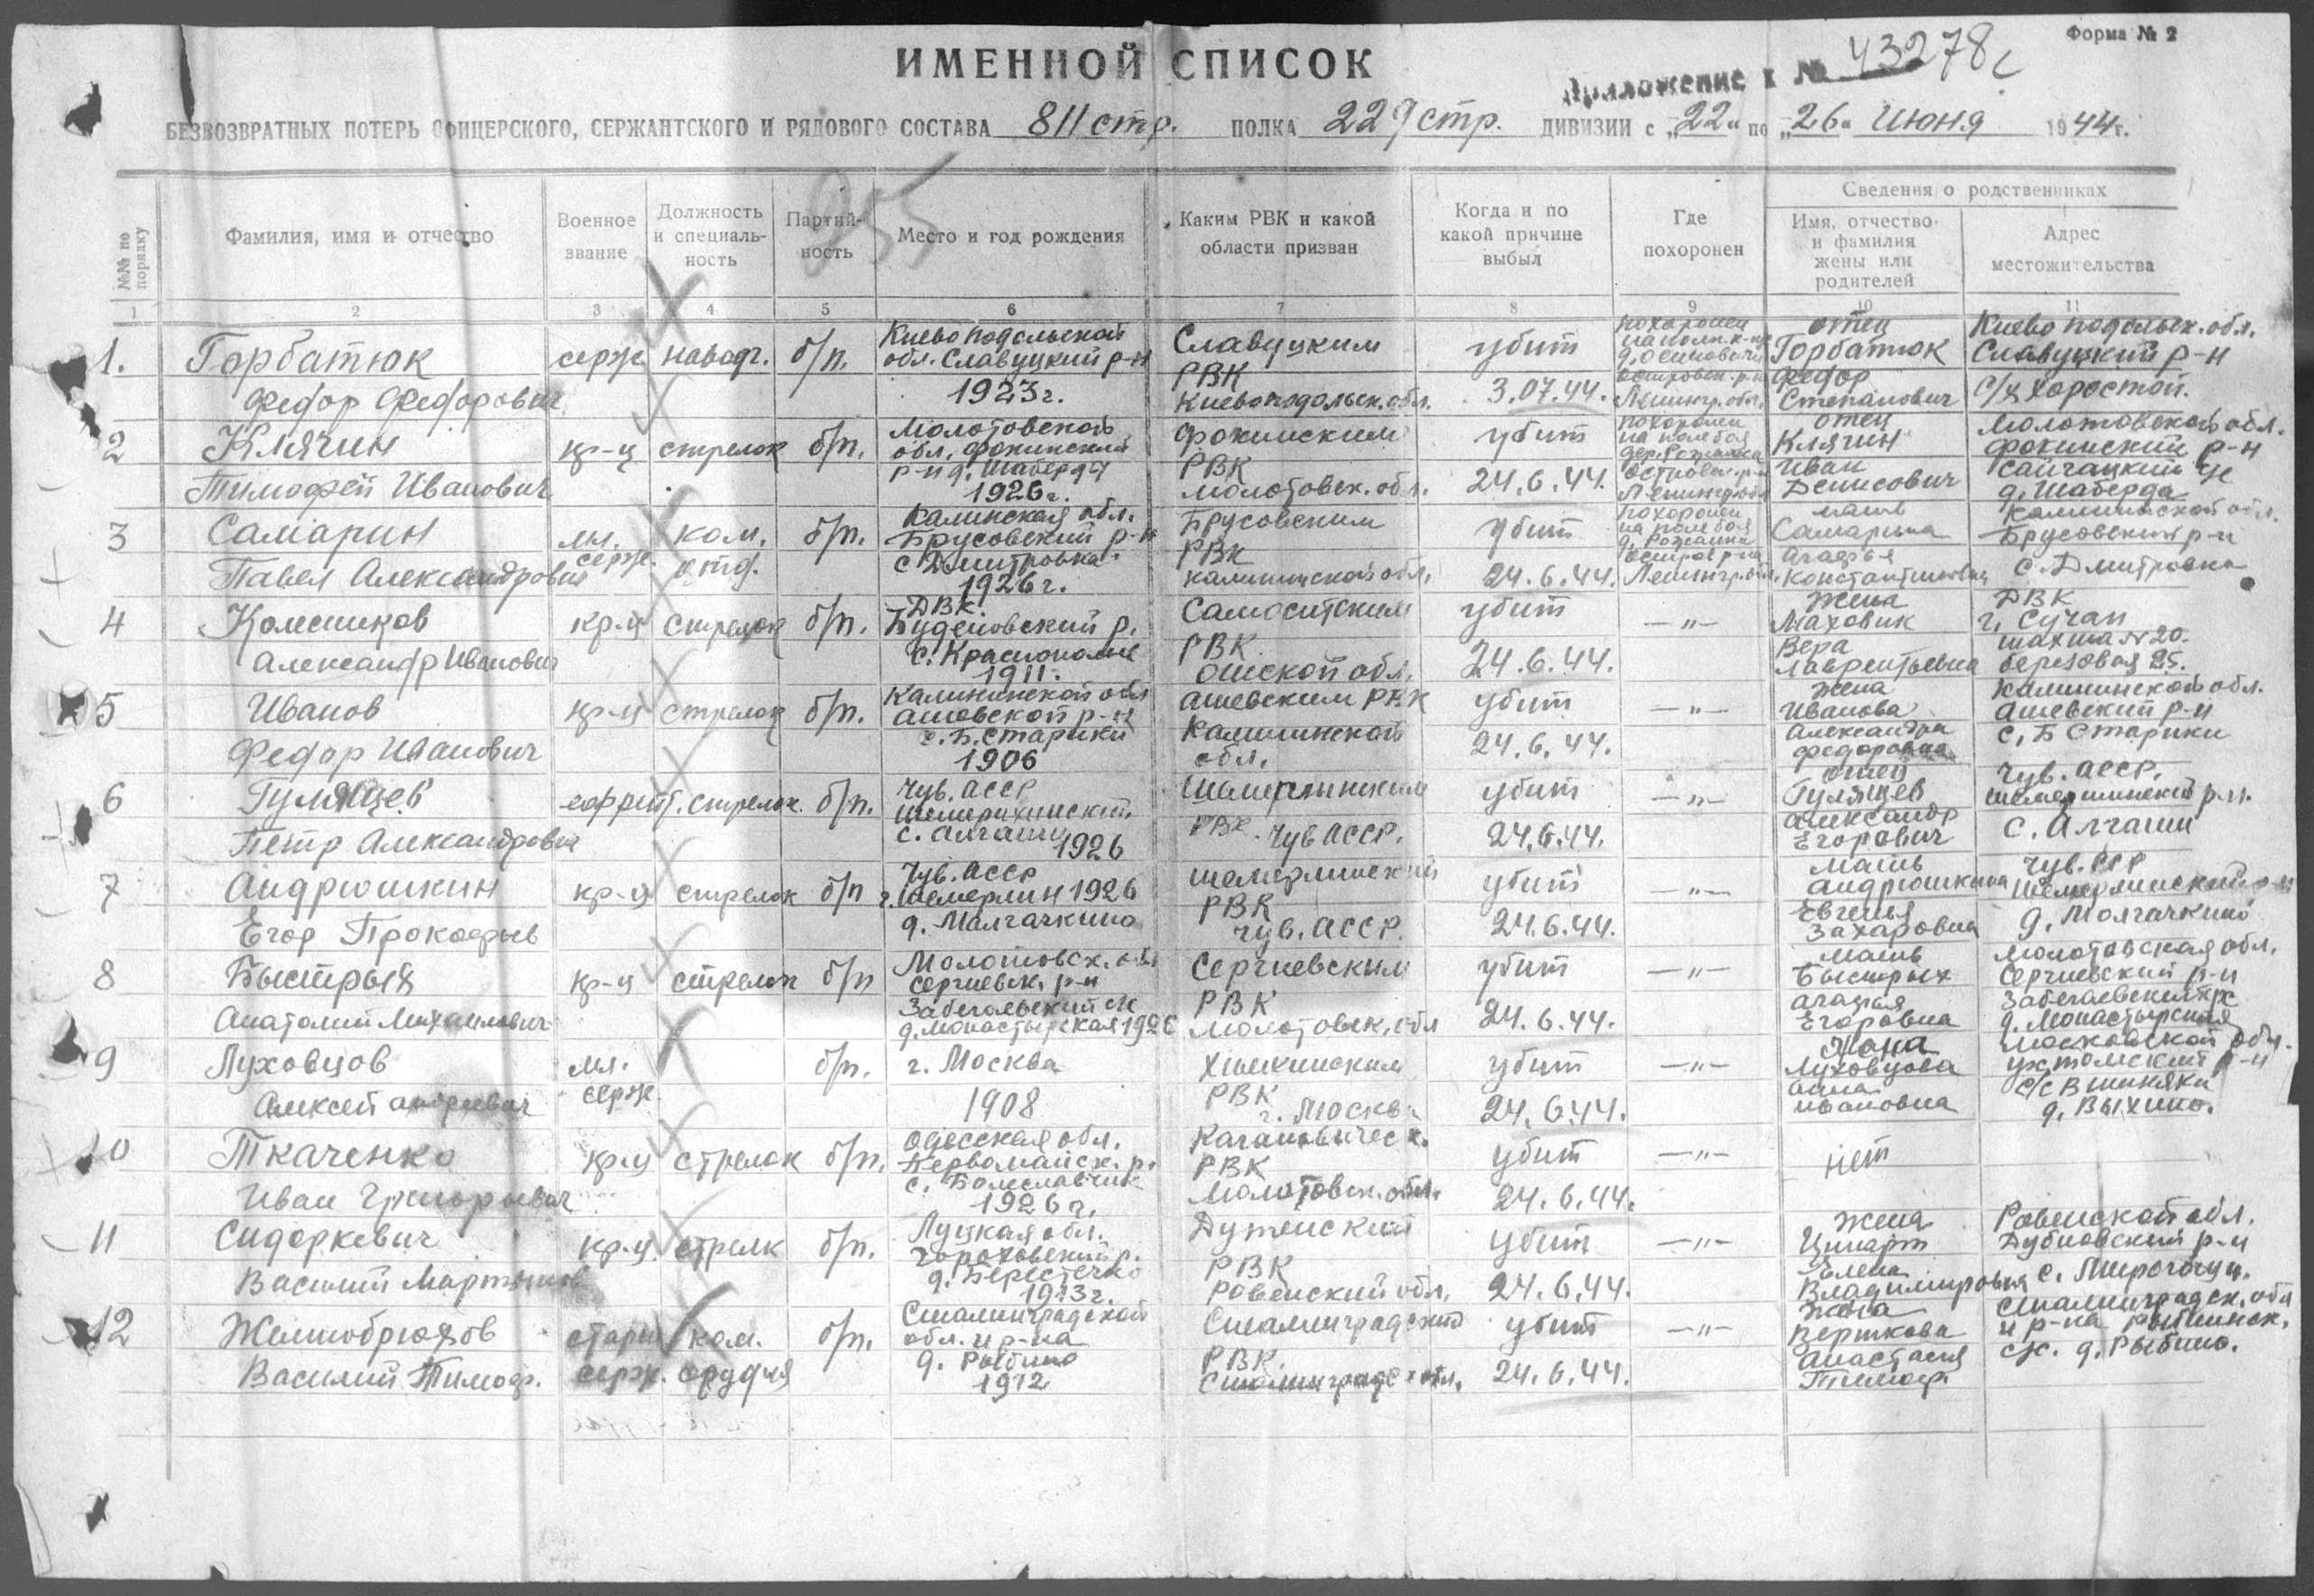 Форма № 2
ИМЕННОЙ СПИСОК
Приложение к № 43278с
БЕЗВОЗВРАТНЫХ ПОТЕРЬ ОФИЦЕРСКОГО, СЕРЖАНТСКОГО И РЯДОВОГО СОСТАВА 811 стр. ПОЛКА 229 стр. ДИВИЗИИ с „22“ по „26“ июня 1944 г.
№№ по порядку
Фамилия, имя и отчество
Военное звание
Должность и специаль-ность
Партий-ность
Место и год рождения
Каким РВК и какой области призван
Когда и по какой причине выбыл
Где похоронен
Сведения о родственниках
Имя, отчество и фамилия жены или родителей
Адрес местожительства
1 2 3 4 5 6 7 8 9 10 11
1. Горбатюк Федор Федорович
серж наводч. б/п.
Киевоподольской обл. Славуцкий р-н 1923 г.
Славуцким РВК Киевоподольск. обл.
убит 3.07.44.
похоронен
Ленингр. обл.
отец Горбатюк Федор Степанович
Киево подольск. обл. Славуцкий р-н с/х Хоростой.
2 Клячин Тимофей Иванович
кр-ц стрелок б/п.
Молотовской обл. Фокинский р-н д. Шаберда 1926 г.
Фокинским РВК Молотовск. обл.
убит 24.6.44.
похоронен на поле боя
Островск. р-н Ленингр. обл
отец Клячин Иван Денисович
Молотовской обл. Фокинский р-н
д. Шаберда
3 Самарин Павел Александрович
мл. серж. ком. отд. б/п.
Калинская обл. Брусовский р-н с Дмитровка. 1926 г.
Брусовским РВК калининской обл.
убит 24.6.44.
похоронен на поле боя
Остров р-на Ленингр. обл.
мать Самарина Агафья Константиновна
Калининской обл. Брусовский р-н с. Дмитровка
4 Колесников Александр Иванович
кр-ц стрелок б/п.
ДВК. Буденовский р. с. Краснополье 1911.
РВК
убит 24.6.44.
—"—
Жена Маховик Вера Лаврентьевна
ДВК г. Сучан шахта № 20. березовая 25.
5 Иванов Федор Иванович
кр-ц стрелок б/п.
Калининской обл Ашевской р-н с. Б. Старики 1906
ашевским РВК Калининской обл.
убит 24.6.44.
—"—
жена Иванова Александра Федоровна
Калининской обл. Ашевский р-н с. Б Старики
6 Гулящев Петр Александрович
ефрейт. стрелок. б/п.
Чув. АССР
с. Алгаши 1926
РВК. Чув АССР.
убит 24.6.44.
—"—
отец Гулящев Александр Егорович
Чув. АССР.
с. Алгаши
7 Андрюшкин Егор Прокофьев
кр-ц стрелок б/п
Чув. АССР г. Шемерлин 1926 д. Малгачкино
шемерлинский РВК Чув. АССР.
убит 24.6.44.
—"—
мать Андрюшкина Евгенья Захаровна
д. Молгачкино
8 Быстрых Анатолий Михаилович
кр-ц стрелок б/п
Молотовск. обл Сергиевск. р-н
д. Монастырская 1926
Сергиевским РВК Молотовск. обл
убит 24.6.44.
—"—
мать Быстрых Агафья Егоровна
Молотовская обл. Сергиевский р-н
д. Монастырская
9 Луховцов Алексей Андреевич
мл. серж. б/п.
г. Москва 1908
РВК г. Москва
убит 24.6.44.
—"—
Жена Луховцова Анна Ивановна
Московской обл. Ухтомский р-н с/с Вишняки д. Выхино.
10 Ткаченко Иван Григорьевич
кр-ц стрелок б/п.
Одесская обл. Первомайск. р. с. Болеславчик 1926 г.
Кагановическ. РВК Молотовск. обл.
убит 24.6.44.
—"—
нет
11 Сидоркевич Василий Мартынов
кр-ц. стрелк б/п.
Луцкая обл. Гороховский р. д. Берестечко 1913 г.
РВК Ровенский обл.
убит 24.6.44.
—"—
Жена
Елена Владимировна
Ровенской обл. Дубновский р-н
12 Желнобрюхов Василий Тимоф.
старш серж. ком. орудия б/п.
Сталинградской обл. и р-на д. Рыбино 1912
Сталинградский РВК. Сталинградс обл.
убит 24.6.44.
—"—
Жена
Анастасия Тимоф.
Сталинградск. обл и р-на
д. Рыбино.